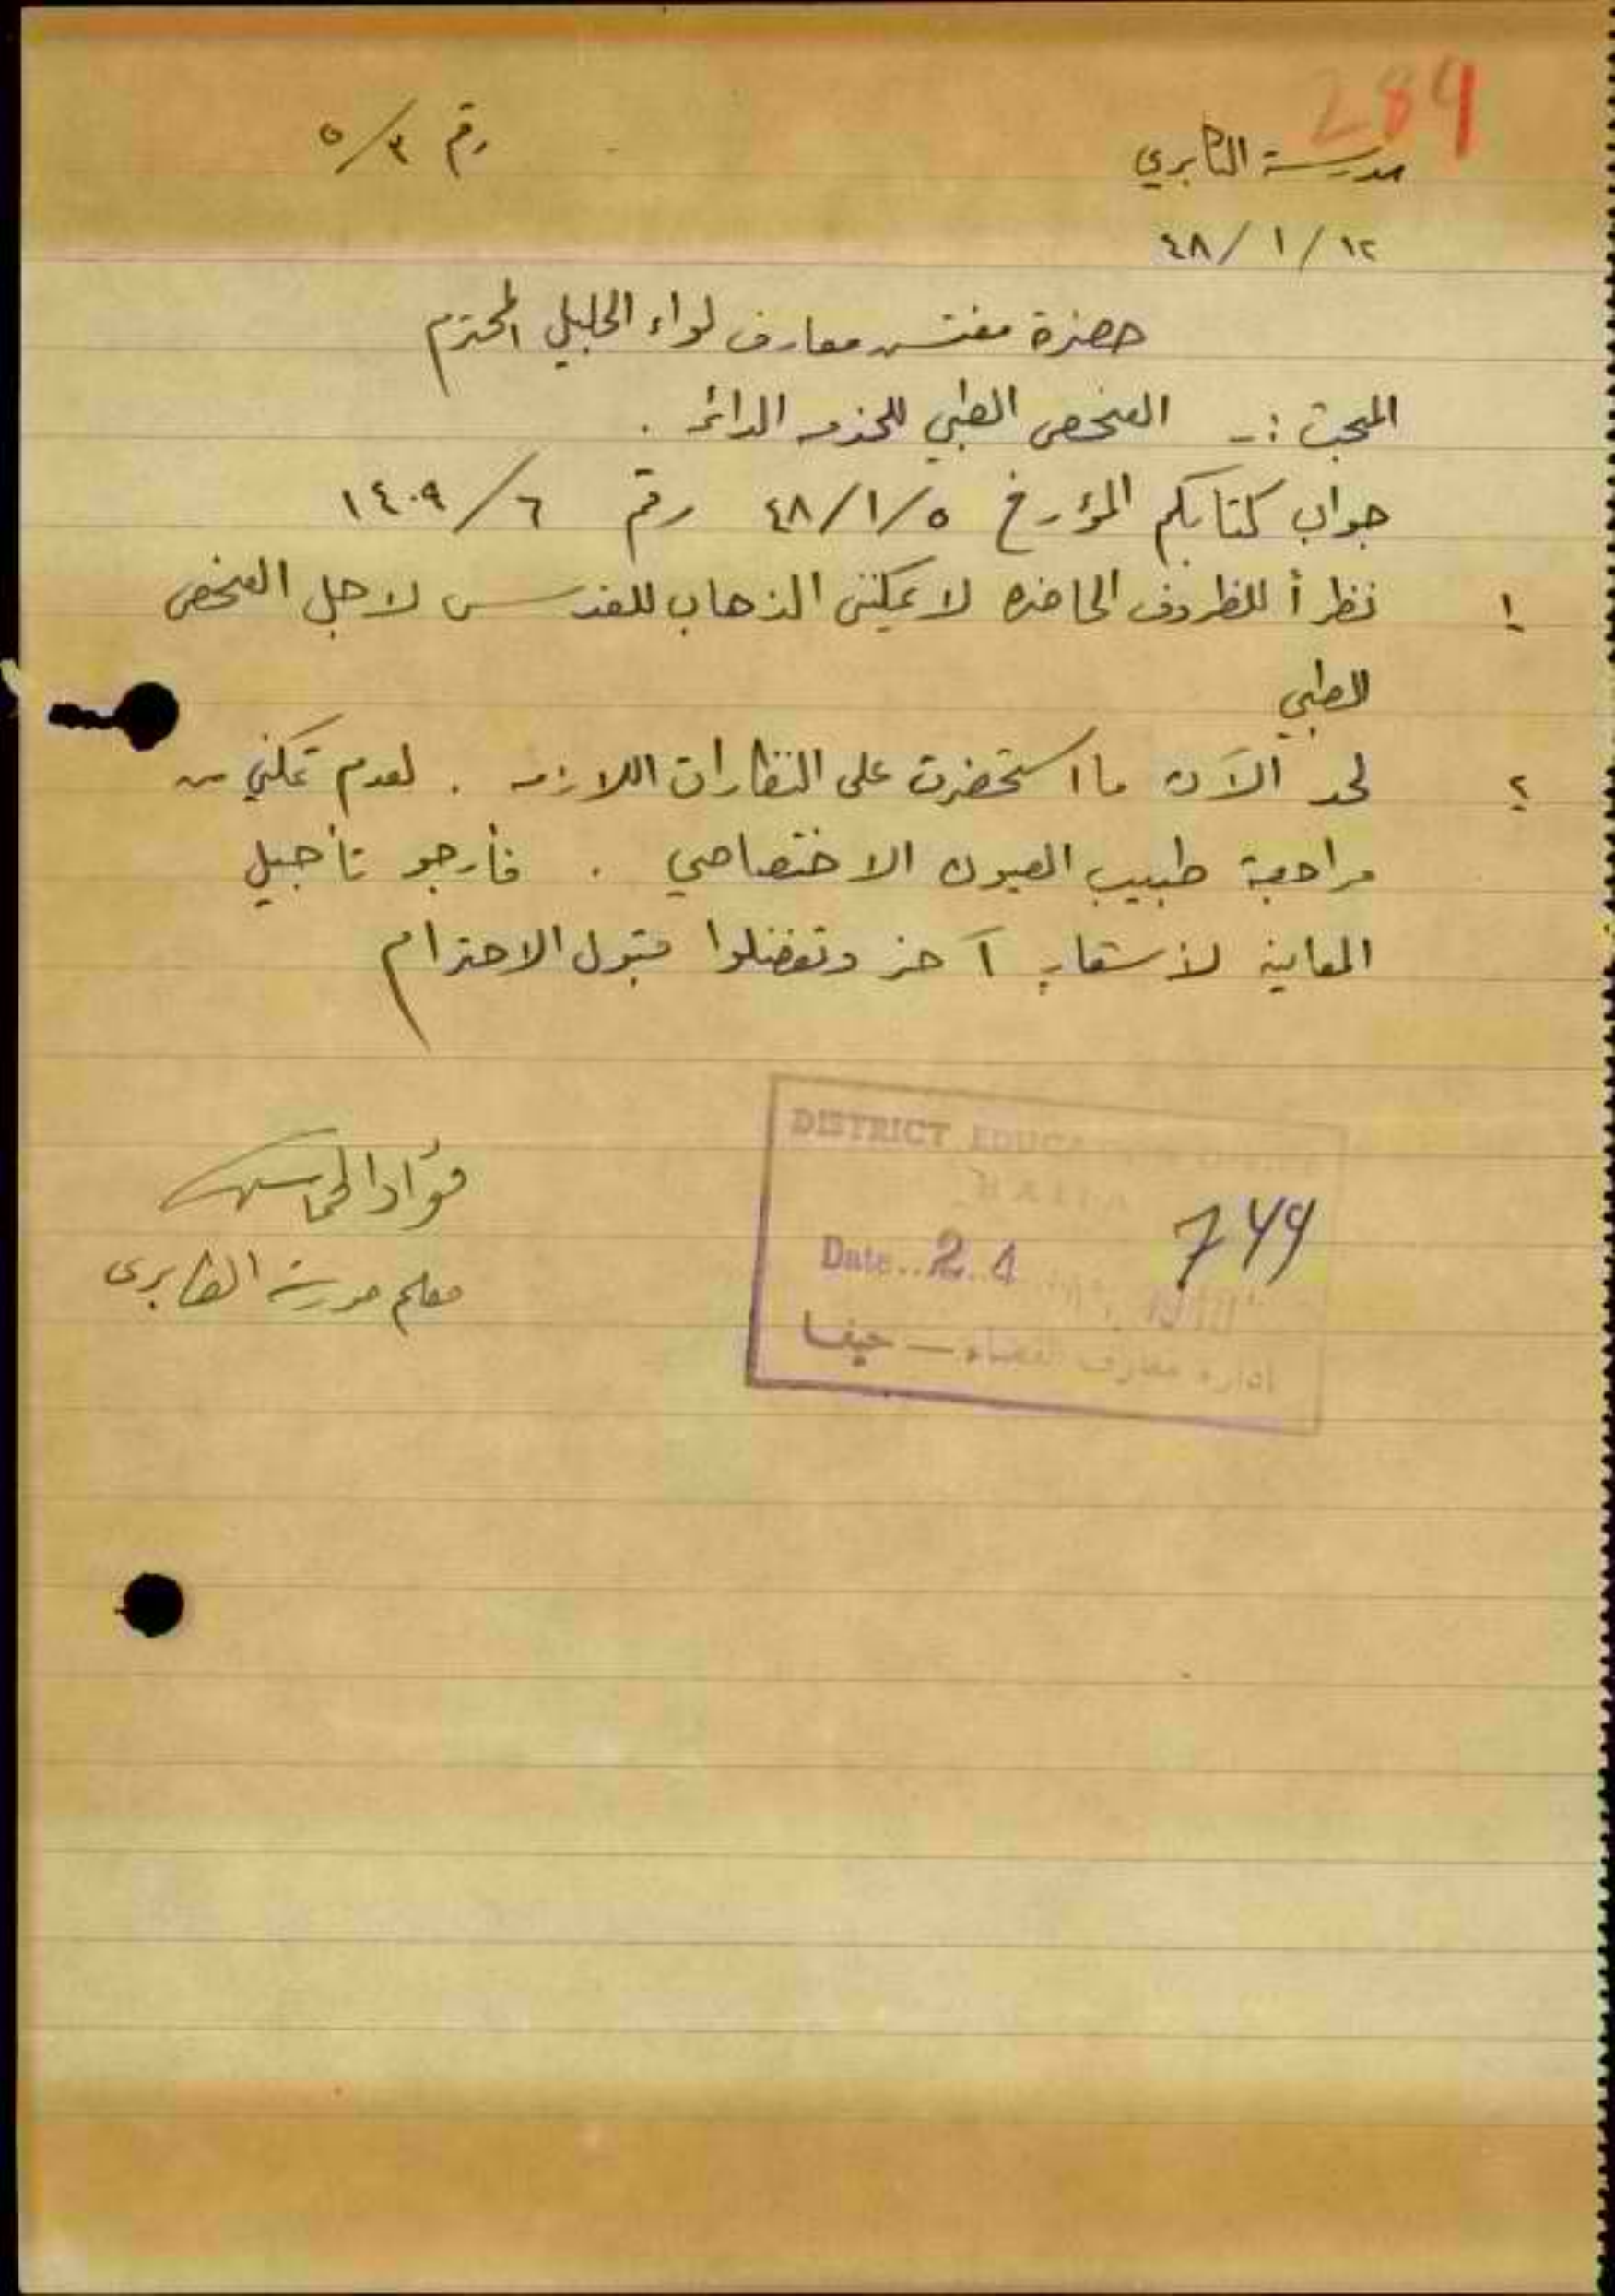 289
مدرسة الكابري
رقم ٣/٥
١٢/١/٤٨
حضرة مفتش معارف لواء الجليل المحترم
المبحث :- الفحص الطبي للخدمه الدائمه .
جواب كتابكم المؤرخ ٥/١/٤٨ رقم ٦/١٤٠٩
١ نظراً للظروف الحاضره لا يمكنني الذهاب للقدس لاجل الفحص
الطبي
٢ لحد الآن ما استحضرت على النظارات اللازمه . لعدم تمكني من
مراجعة طبيب العيون الاختصاصي . فأرجو تأجيل
المعاينه لأشعار آخر وتفضلوا بقبول الاحترام
فؤاد
معلم مدرسة الكابري
DISTRICT EDUCATION OFFICE
HAIFA
744
Date.. 24
ادارة معارف القضاء — حيفا